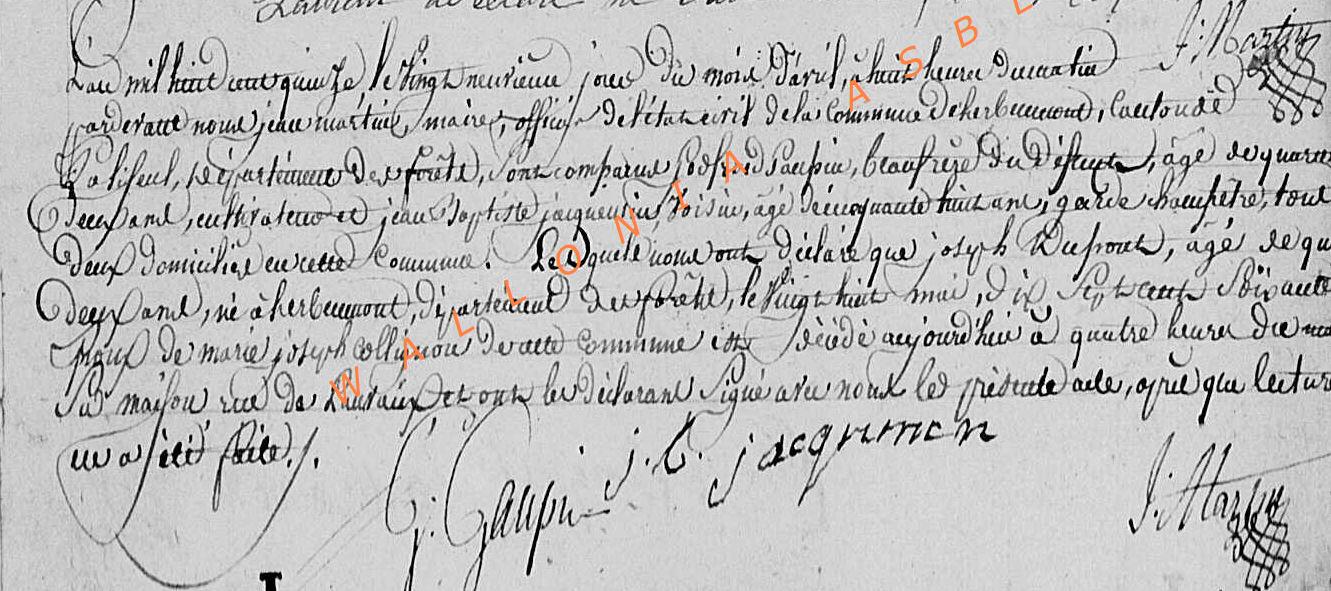 J: Martin
L'an mil huit cent quinze, le vingt neuvieme jour du mois d'avril, à huit heures du matin
pardevant nous jean martin, maire, officier de l'état civil de la Commune d'herbeumont, Canton de
Paliseul, département des forêts, sont comparus Gaupin, beaufrère du défunt, âgé de quarante
deux ans, cultivateur et jean Baptiste jacquemin, voisin, âgé de cinquante huit ans, garde champêtre, tous
deux domiciliés en cette Commune. Lesquels nous ont déclaré que joseph Dupont, âgé de
deux ans, né à herbeumont, département des forêts, le vingt huit mai, dix Sept cent Soixante
Epoux de marie joseph Collignon de cette commune est décédé aujourd'hui à quatre heures du
Sa maison rue de et ont les déclarans signé avec nous led présente acte, après que lecture
en a été faite ./.
j. b. jacqumin
G: Gaupin
J: Martin
WALLONIA ASBL